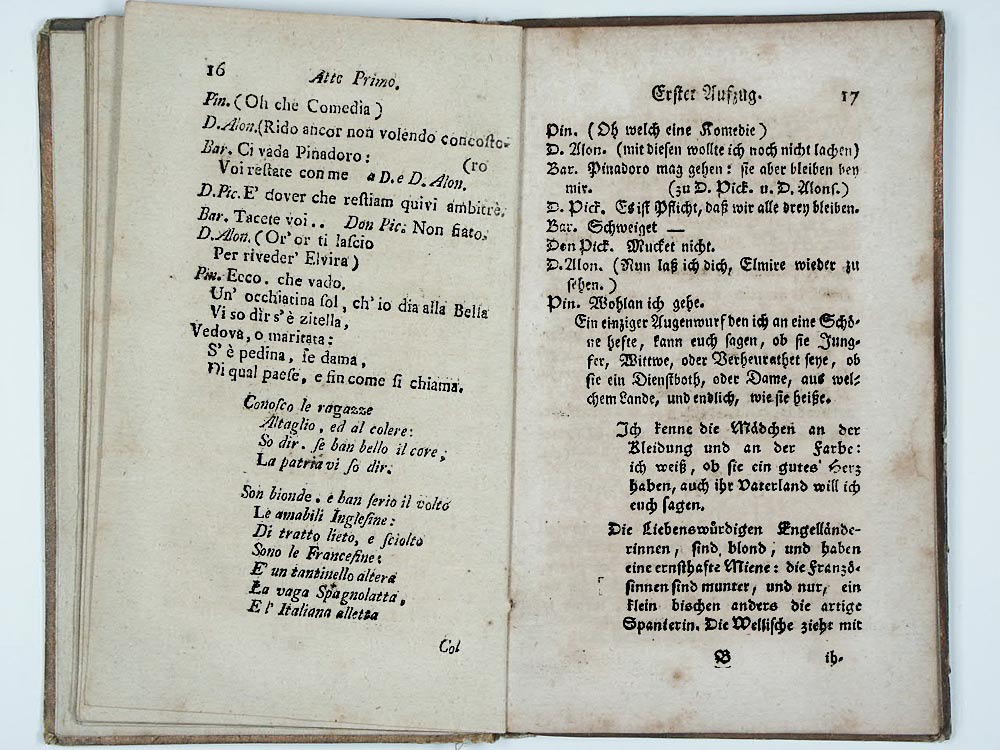 16
Atto Primo.
Pin. (Oh che Comedia)
D. Alon. (Rido ancor non volendo concosto-
Bar. Ci vada Pinadoro: (ro
Voi restate con me a D. e D. Alon.
D. Pic. E' dover che restiam quivi ambitrè.
Bar. Tacete voi.. Don Pic: Non fiato.
D. Alon. (Or' or ti lascio
Per riveder' Elvira)
Pin. Ecco. che vado.
Un' occhiatina sol, ch' io dia alla Bella
Vi so dir s' è zitella,
Vedova, o maritata:
S' è pedina, se dama,
Di qual paese, e fin come si chiama.
Conosco le ragazze
Al taglio, ed al colere:
So dir. se han bello il core;
La patria vi so dir.
Son bionde. e han serio il volto
Le amabili Inglesine:
Di tratto lieto, e sciolto
Sono le Francesine:
E' un tantinello altera
La vaga Spagnolatta,
E l' Italiana alletta
Col
Erster Aufzug. 17
Pin. (Oh welch eine Komedie)
D. Alon. (mit diesen wollte ich noch nicht lachen)
Bar. Pinadoro mag gehen: sie aber bleiben bey
mir. (zu D. Pick. u. D. Alons.)
D. Pick. Es ist Pflicht, daß wir alle drey bleiben.
Bar. Schweiget —
Don Pick. Mucket nicht.
D. Alon. (Nun laß ich dich, Elmire wieder zu
sehen.)
Pin. Wohlan ich gehe.
Ein einziger Augenwurf den ich an eine Schö-
ne hefte, kann euch sagen, ob sie Jung-
fer, Wittwe, oder Verheurathet seye, ob
sie ein Dienstboth, oder Dame, aus wel-
chem Lande, und endlich, wie sie heiße.
Ich kenne die Mädchen an der
Kleidung und an der Farbe:
ich weiß, ob sie ein gutes Herz
haben, auch ihr Vaterland will ich
euch sagen.
Die Liebenswürdigen Engellände-
rinnen, sind blond, und haben
eine ernsthafte Miene: die Französ-
sinnen sind munter, und nur, ein
klein bischen anders die artige
Spanierin. Die Wellische zieht mit
B ih-